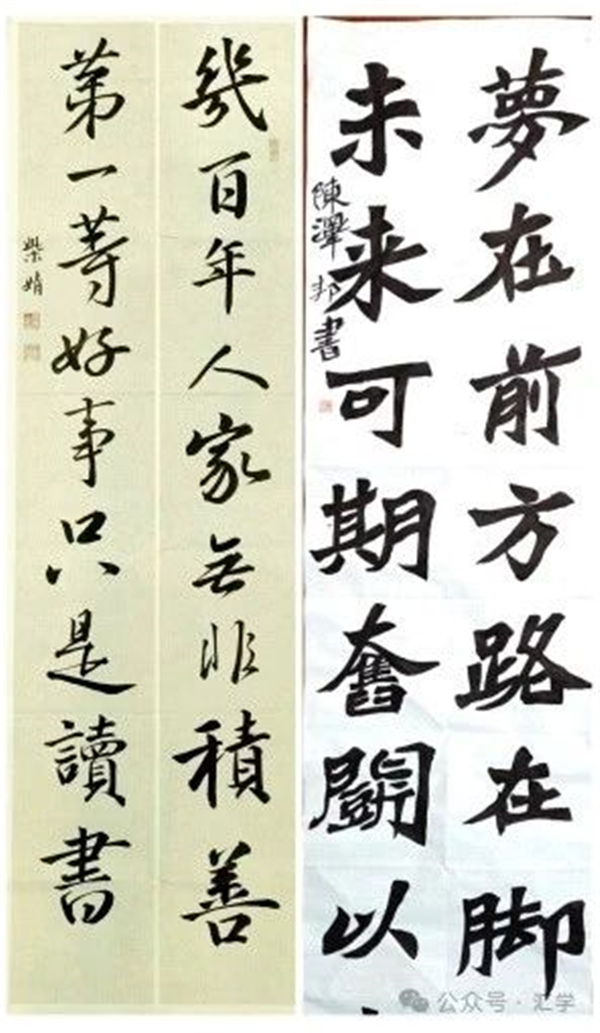 幾百年人家無非積善
第一等好事只是讀書
柴婧
夢在前方路在脚
未来可期奮鬭以
陳澤邦書
公众号·汇学